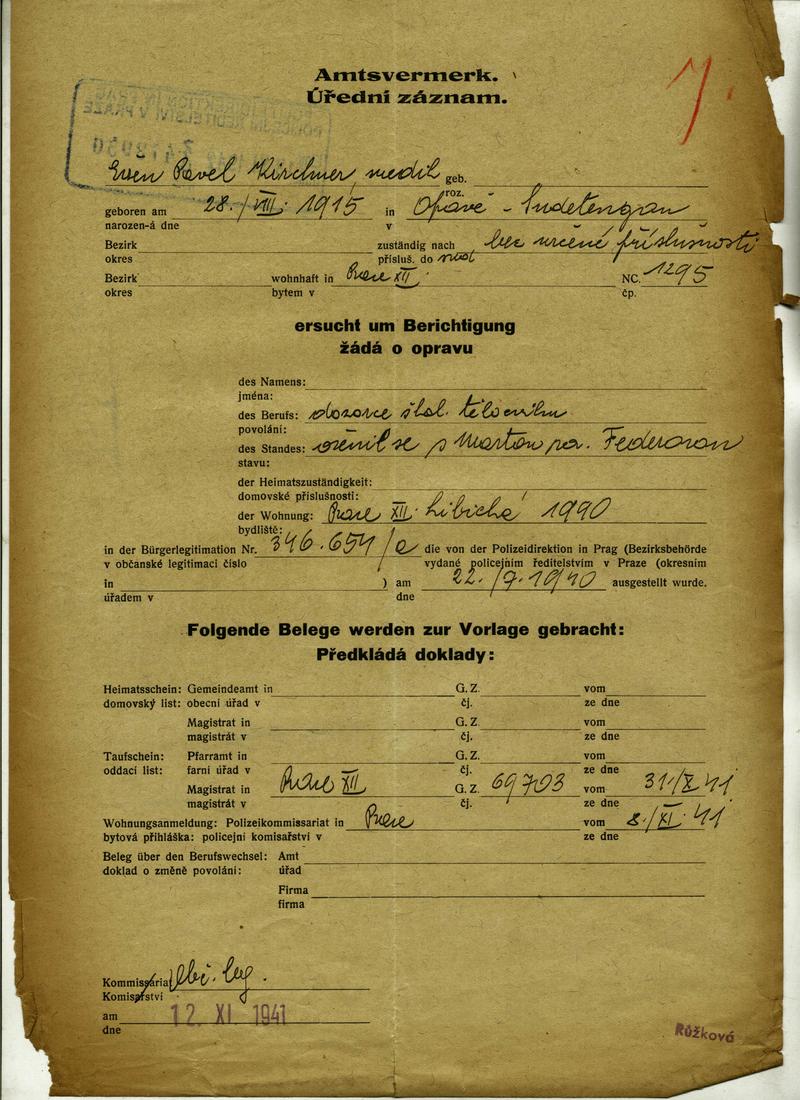 Amtsvermerk.
Úřední záznam.
7.
Pavel Kirchner geb.
roz.
geboren am 28./VIII. 1915 in Opavě - Sudetengau
narozen-á dne v
Bezirk zuständig nach bez určené příslušnosti
okres přísluš. do
Bezirk wohnhaft in XII. NC. 1295
okres bytem v čp.
ersucht um Berichtigung
žádá o opravu
des Namens:
jména:
des Berufs:
povolání:
des Standes: oženil se s Martou
stavu:
der Heimatszuständigkeit:
domovské příslušnosti:
der Wohnung: XII. Libická 1990
bydliště:
in der Bürgerlegitimation Nr. 346.654/ die von der Polizeidirektion in Prag (Bezirksbehörde
v občanské legitimaci číslo vydané policejním ředitelstvím v Praze (okresním
in ) am 22./7. 1940 ausgestellt wurde.
úřadem v dne
Folgende Belege werden zur Vorlage gebracht:
Předkládá doklady:
Heimatsschein: Gemeindeamt in G. Z. vom
domovský list: obecní úřad v čj. ze dne
Magistrat in G. Z. vom
magistrát v čj. ze dne
Taufschein: Pfarramt in G. Z. vom
oddací list: farní úřad v čj. ze dne
Magistrat in XII G. Z. 69703 vom 31./X. 41
magistrát v čj. ze dne
Wohnungsanmeldung: Polizeikommissariat in vom 8./XI. 41
bytová přihláška: policejní komisařství v ze dne
Beleg über den Berufswechsel: Amt
doklad o změně povolání: úřad
Firma
firma
Kommissariat
Komisařství
am 12. XI. 1941
dne
Růžková